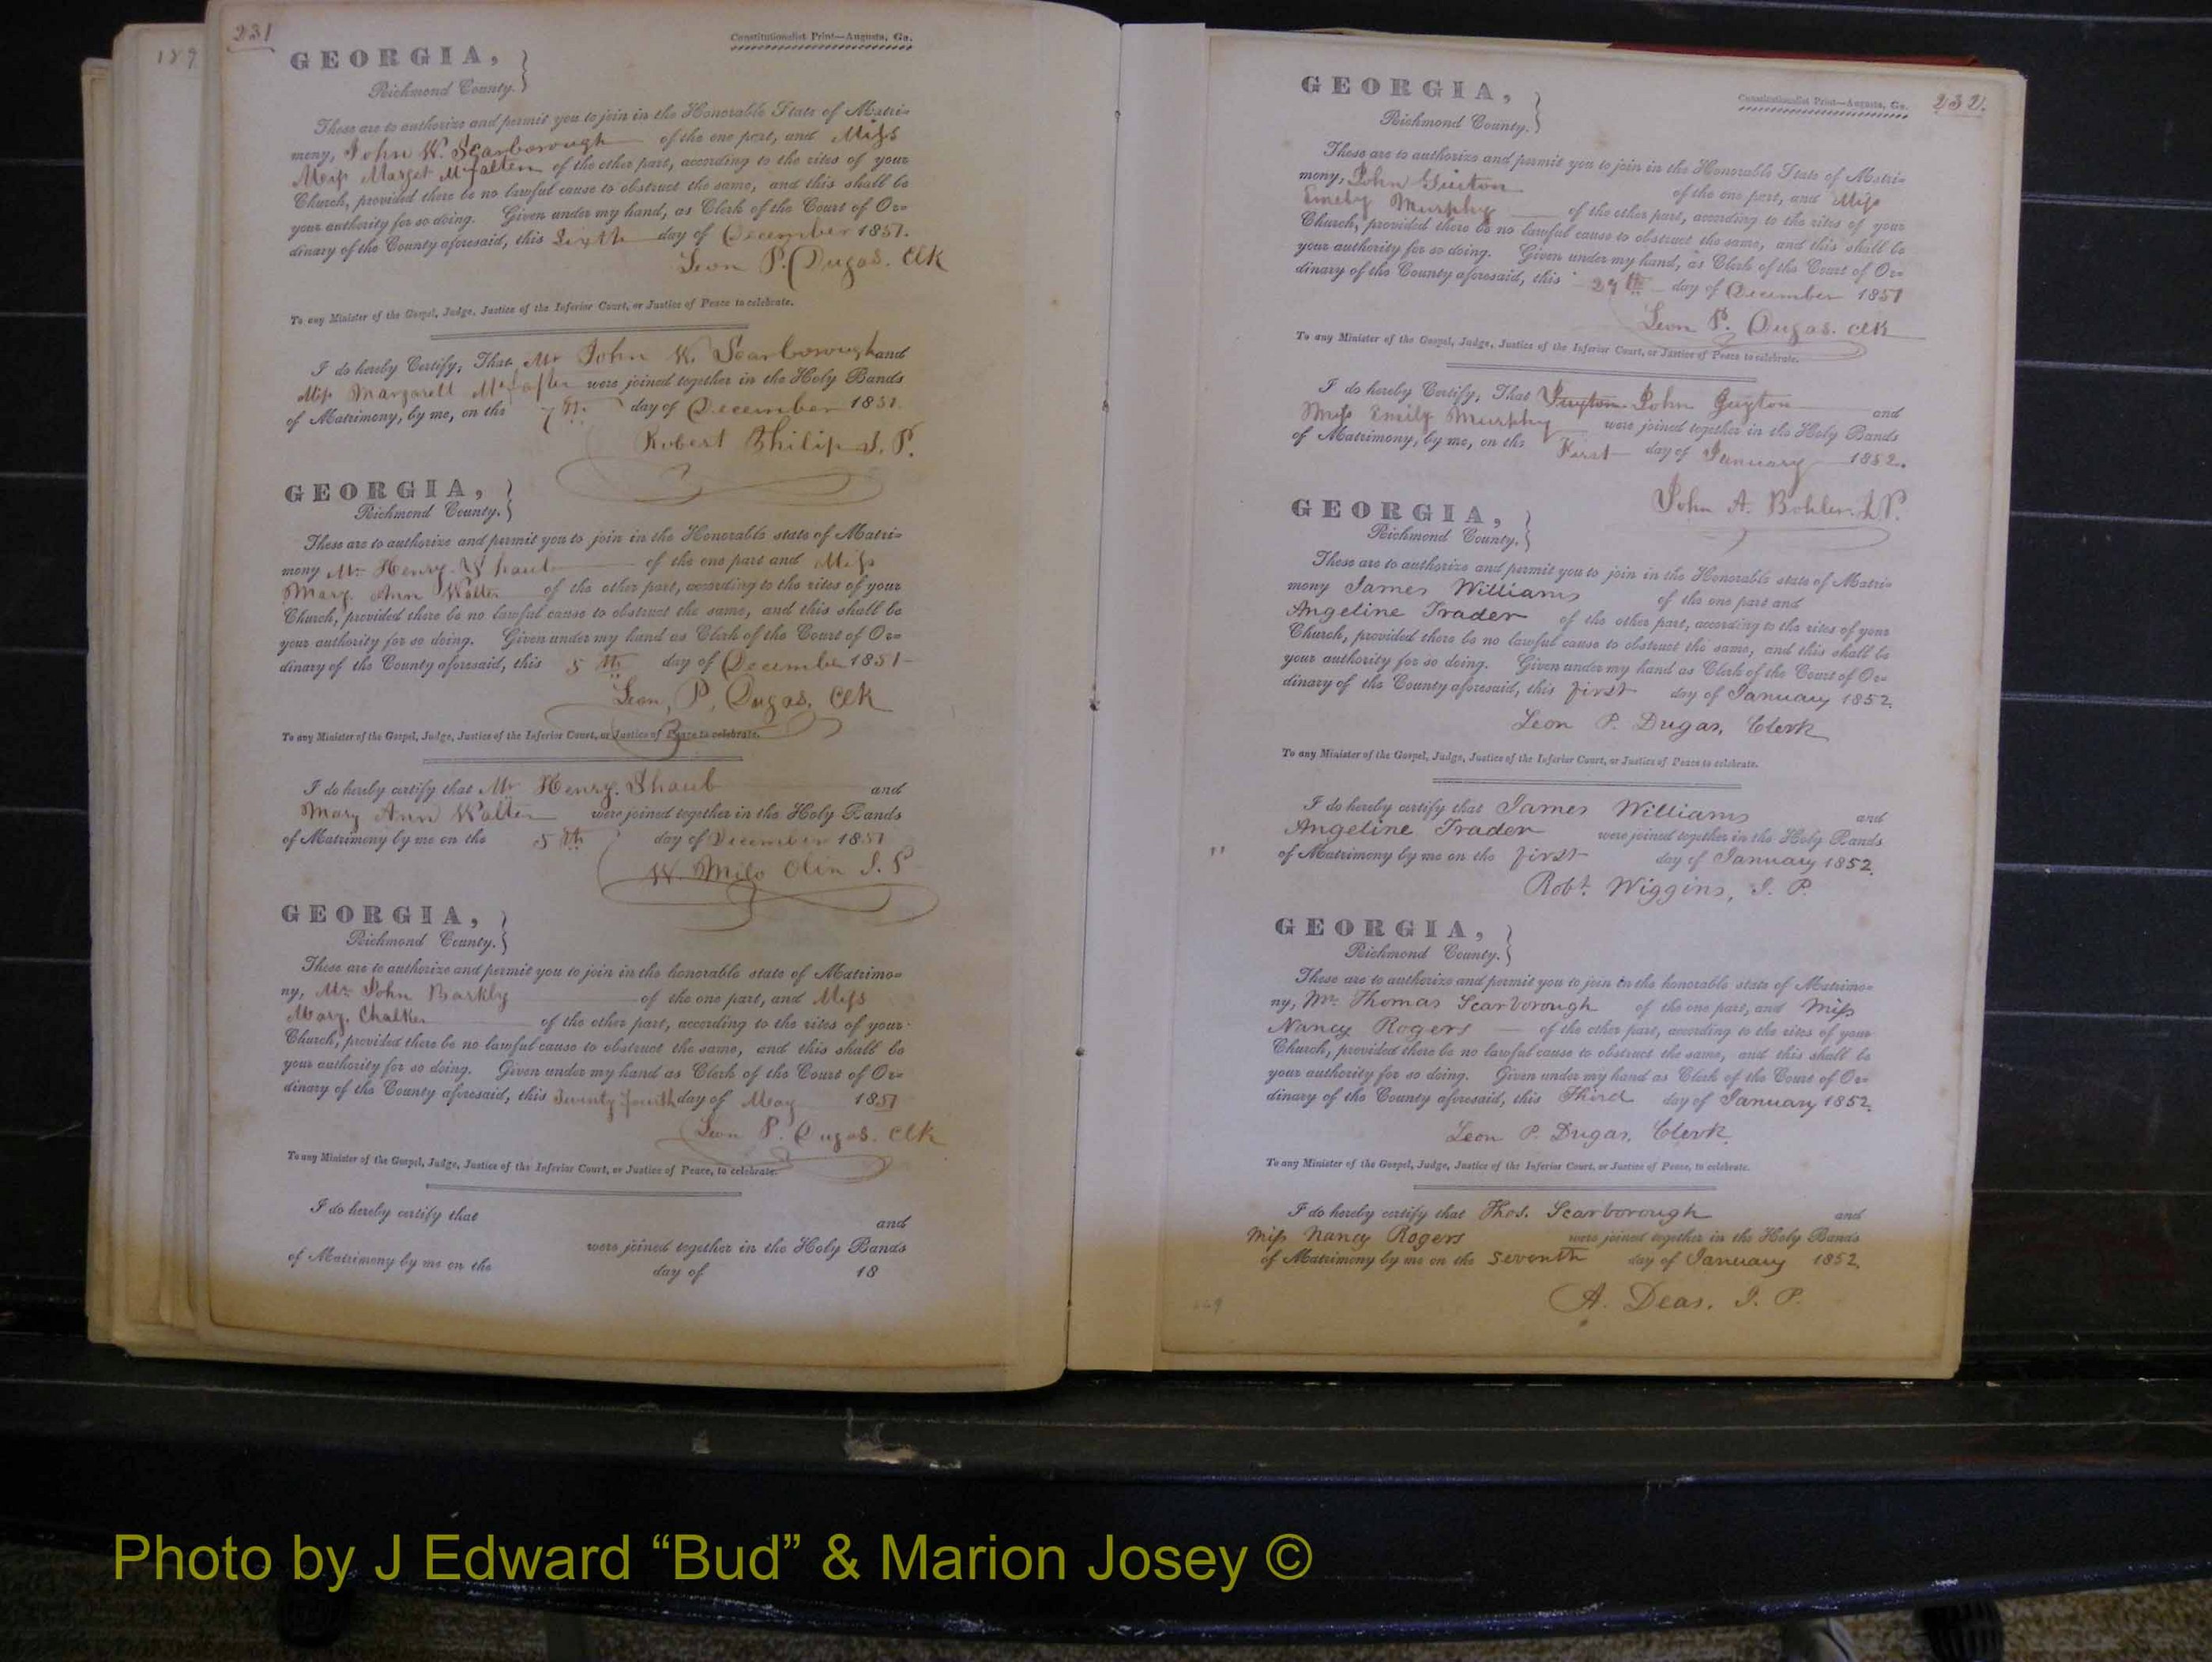 189
231
Constitutionalist Print—Augusta, Ga.
GEORGIA,
Richmond County.
These are to authorize and permit you to join in the Honorable State of Matri-
mony, John W. Scarborough of the one part, and Miss
Miss Marget of the other part, according to the rites of your
Church, provided there be no lawful cause to obstruct the same, and this shall be
your authority for so doing. Given under my hand, as Clerk of the Court of Or-
dinary of the County aforesaid, this Sixth day of December 1851.
Leon P. Dugas. Clk
To any Minister of the Gospel, Judge, Justice of the Inferior Court, or Justice of Peace to celebrate.
I do hereby Certify, That Mr John W. Scarborough and
Miss Margarett were joined together in the Holy Bands
of Matrimony, by me, on the 7th day of December 1851.
Robert Philip J. P.
GEORGIA,
Richmond County.
These are to authorize and permit you to join in the Honorable state of Matri-
mony Mr Henry Shaub of the one part and Miss
Mary Ann Walter of the other part, according to the rites of your
Church, provided there be no lawful cause to obstruct the same, and this shall be
your authority for so doing. Given under my hand as Clerk of the Court of Or-
dinary of the County aforesaid, this 5th day of December 1851
Leon, P, Dugas, Clk
To any Minister of the Gospel, Judge, Justice of the Inferior Court, or Justice of Peace to celebrate.
I do hereby certify that Mr Henry. Shaub and
Mary Ann Walter were joined together in the Holy Bands
of Matrimony by me on the 5th day of December 1851
W. Milo Olin J. P
GEORGIA,
Richmond County.
These are to authorize and permit you to join in the honorable state of Matrimo-
ny, Mr John Barkley of the one part, and Miss
Mary. Chalker of the other part, according to the rites of your
Church, provided there be no lawful cause to obstruct the same, and this shall be
your authority for so doing. Given under my hand as Clerk of the Court of Or-
dinary of the County aforesaid, this Twenty fourth day of May 1851
Leon P. Dugas. Clk
To any Minister of the Gospel, Judge, Justice of the Inferior Court, or Justice of Peace, to celebrate.
I do hereby certify that
and
were joined together in the Holy Bands
of Matrimony by me on the day of 18
232.
Constitutionalist Print—Augusta, Ga.
GEORGIA,
Richmond County.
These are to authorize and permit you to join in the Honorable State of Matri-
mony, John Guiton of the one part, and Miss
Emely Murphy of the other part, according to the rites of your
Church, provided there be no lawful cause to obstruct the same, and this shall be
your authority for so doing. Given under my hand, as Clerk of the Court of Or-
dinary of the County aforesaid, this 29th day of December 1851
Leon P. Dugas. Clk
To any Minister of the Gospel, Judge, Justice of the Inferior Court, or Justice of Peace to celebrate.
I do hereby Certify, That Guyton John Guyton and
Miss Emily Murphy were joined together in the Holy Bands
of Matrimony, by me, on the First day of January 1852.
John A. Bohler. J.P.
GEORGIA,
Richmond County.
These are to authorize and permit you to join in the Honorable state of Matri-
mony James Williams of the one part and
Angeline Trader of the other part, according to the rites of your
Church, provided there be no lawful cause to obstruct the same, and this shall be
your authority for so doing. Given under my hand as Clerk of the Court of Or-
dinary of the County aforesaid, this first day of January 1852.
Leon P. Dugas, Clerk
To any Minister of the Gospel, Judge, Justice of the Inferior Court, or Justice of Peace to celebrate.
I do hereby certify that James Williams and
Angeline Trader were joined together in the Holy Bands
of Matrimony by me on the first day of January 1852.
Robt. Wiggins, J. P.
GEORGIA,
Richmond County.
These are to authorize and permit you to join in the honorable state of Matrimo-
ny, Mr. Thomas Scarborough of the one part, and Miss
Nancy Rogers of the other part, according to the rites of your
Church, provided there be no lawful cause to obstruct the same, and this shall be
your authority for so doing. Given under my hand as Clerk of the Court of Or-
dinary of the County aforesaid, this Third day of January 1852.
Leon P. Dugas, Clerk.
To any Minister of the Gospel, Judge, Justice of the Inferior Court, or Justice of Peace, to celebrate.
I do hereby certify that Thos. Scarborough and
Miss Nancy Rogers were joined together in the Holy Bands
of Matrimony by me on the Seventh day of January 1852.
A. Deas, J. P.
Photo by J Edward “Bud” & Marion Josey ©